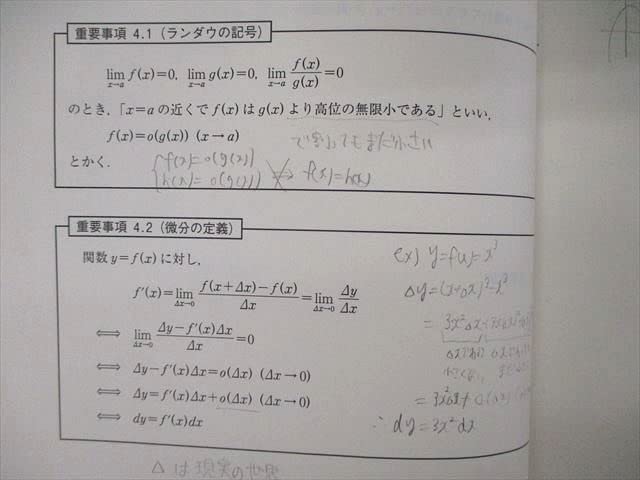 重要事項 4.1 (ランダウの記号)
lim_{x→a} f(x)=0, lim_{x→a} g(x)=0, lim_{x→a} f(x)/g(x)=0
のとき,「x=a の近くで f(x) は g(x) より高位の無限小である」といい,
f(x)=o(g(x)) (x→a)
で割ってもまだ小さい
とかく.
f(x)=o(g(x))
h(x)=o(g(x)) ⇏ f(x)=h(x)
重要事項 4.2 (微分の定義)
関数 y=f(x) に対し,
f′(x)=lim_{Δx→0} (f(x+Δx)−f(x))/Δx=lim_{Δx→0} Δy/Δx
⟺ lim_{Δx→0} (Δy−f′(x)Δx)/Δx=0
⟺ Δy−f′(x)Δx=o(Δx) (Δx→0)
⟺ Δy=f′(x)Δx+o(Δx) (Δx→0)
⟺ dy=f′(x)dx
ex) y=f(x)=x³
Δy=(x+Δx)³−x³
=3x²Δx+
=3x²Δx+
∴ dy=3x²dx
Δ は 現実の世界